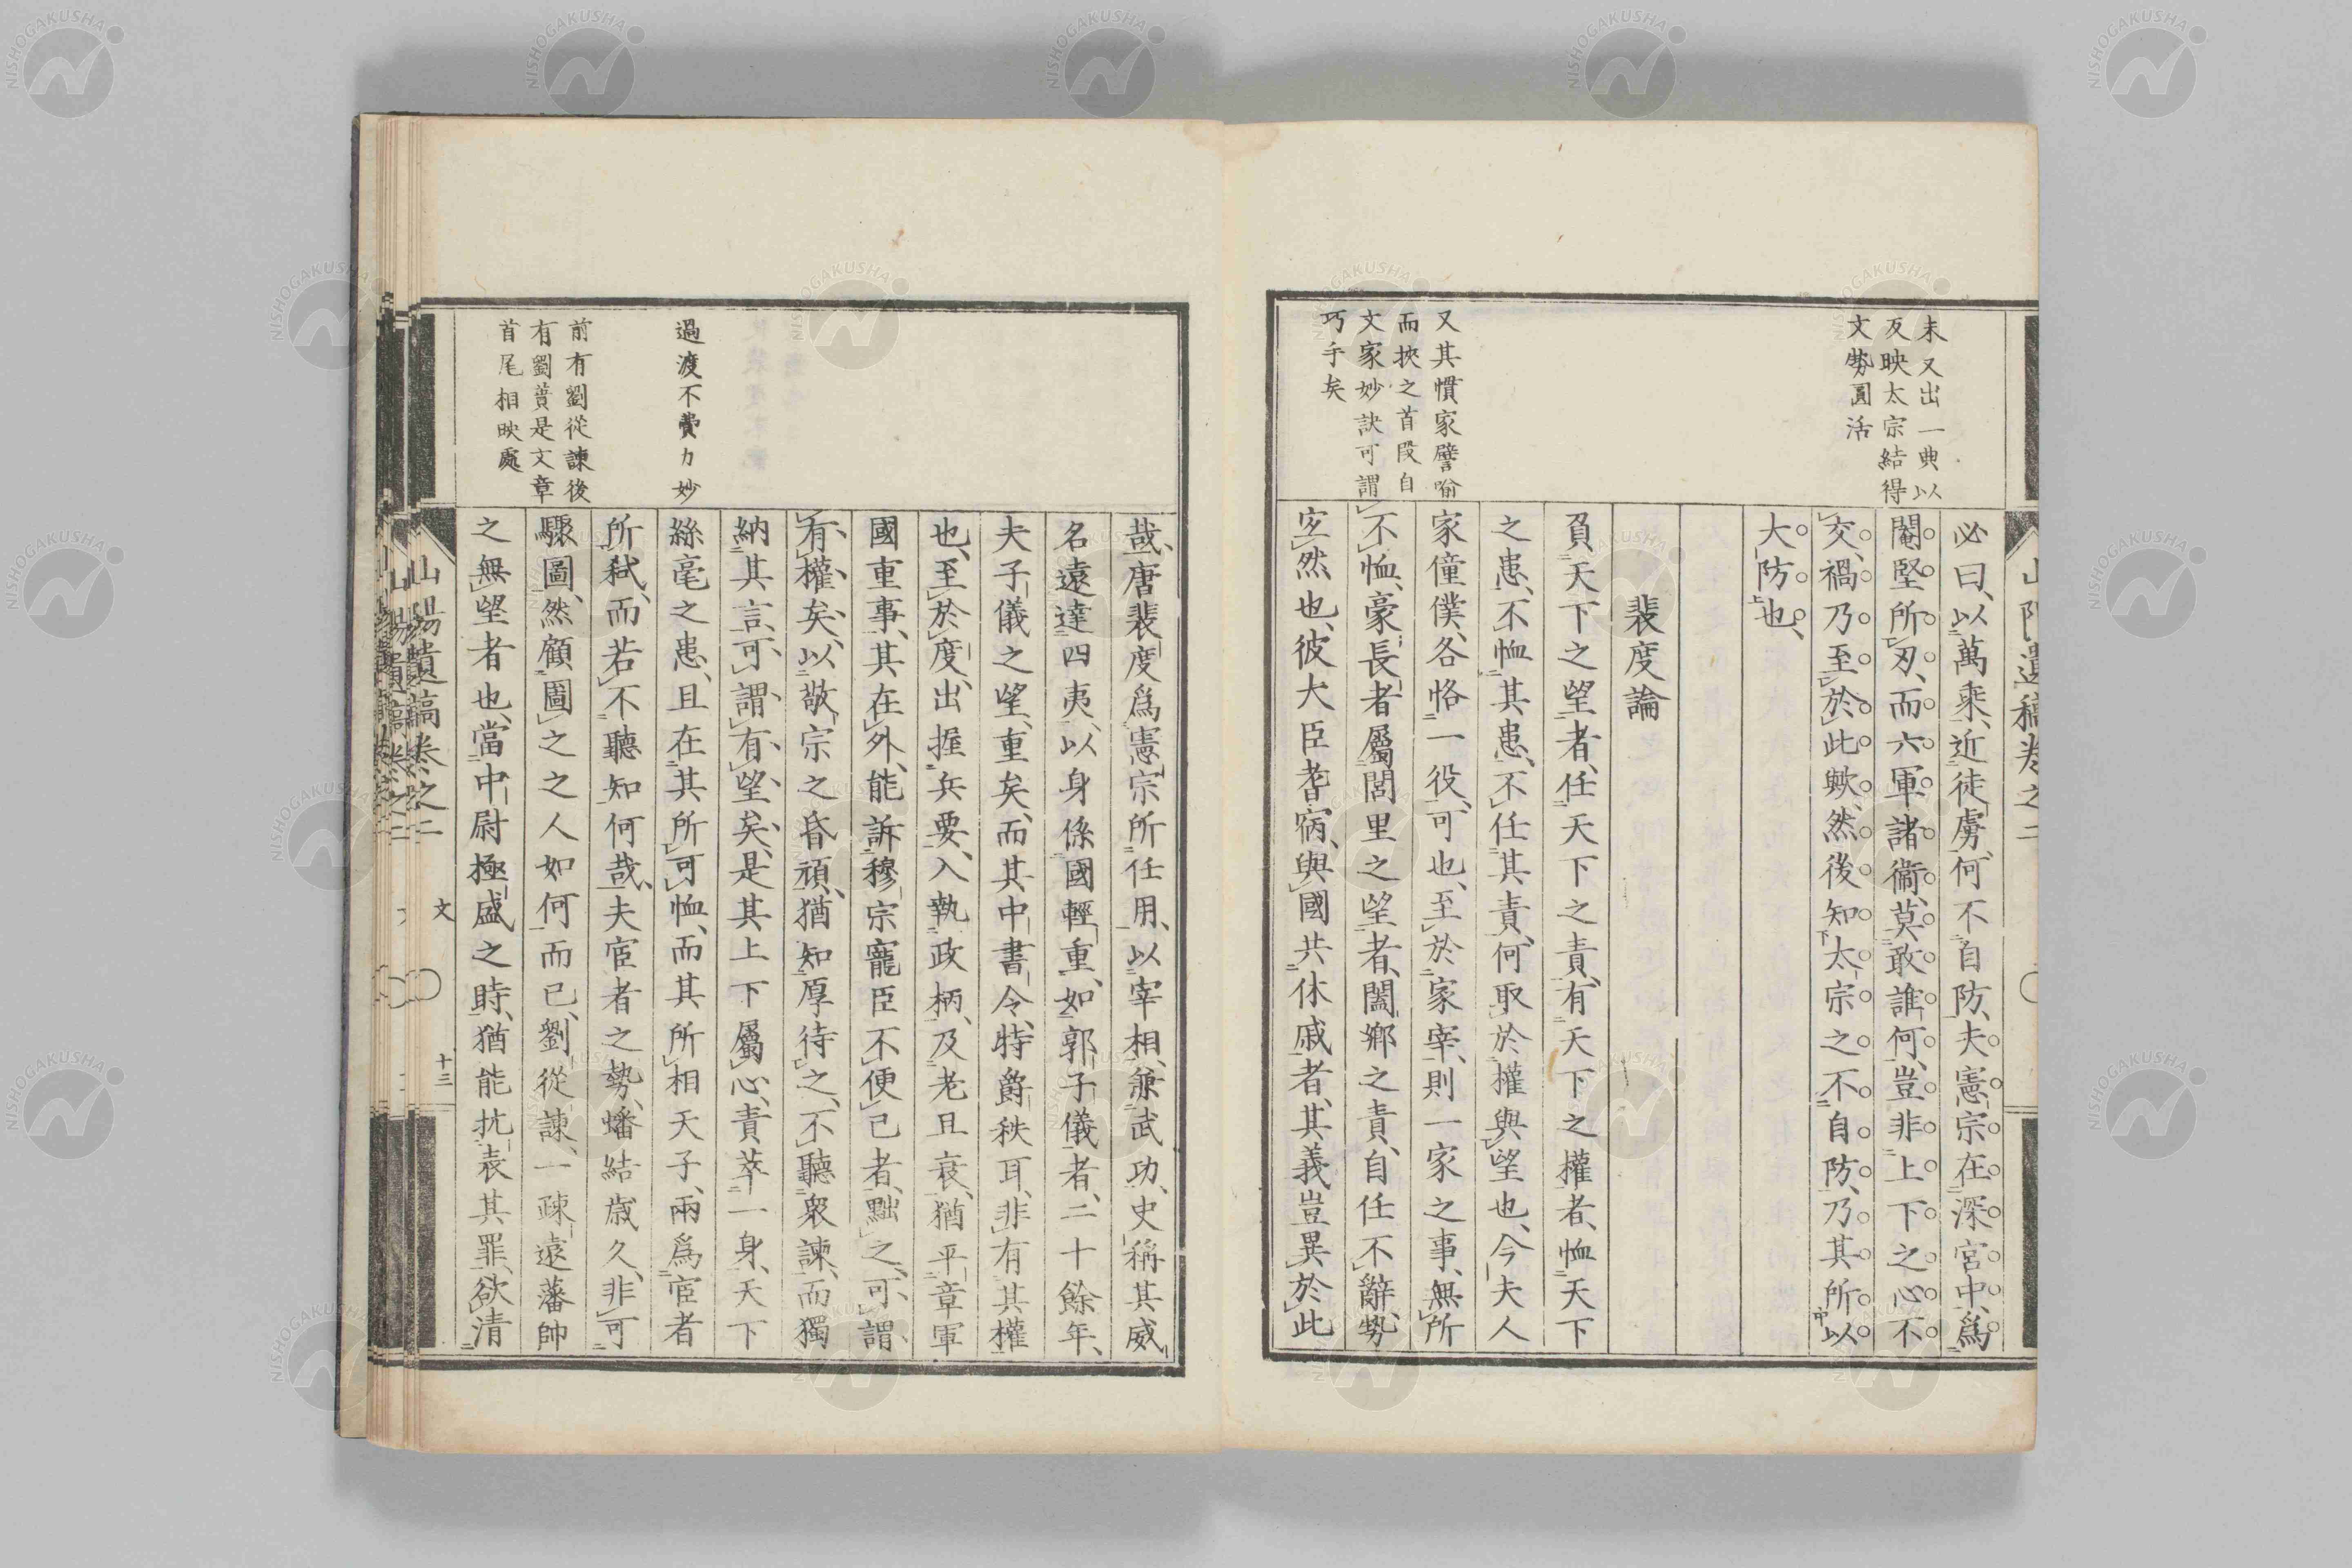 末又出一典以
反映太宗結得
文勢圓活
必曰、以萬乘、近徒虜、何不自防、夫憲宗在深宮中、爲
閹堅所刃、而六軍諸衞、莫敢誰何、豈非上下之心不
交、禍乃至於此歟、然後知太宗之不自防、乃其所以
大防也、
裴度論
又其慣家譬喻
而挾之首段自
文家妙訣可謂
巧手矣
負天下之望者、任天下之責、有天下之權者、恤天下
之患、不恤其患、不任其責、何取於權與望也、今夫人
家僮僕、各恪一役、可也、至於家宰、則一家之事、無所
不恤、豪長者屬閭里之望者、闔鄉之責、自任不辭、勢
宜然也、彼大臣耆宿、與國共休戚者、其義豈異於此
哉、唐裴度爲憲宗所任用、以宰相、兼武功、史稱其威
名遠達四夷、以身係國輕重、如郭子儀者、二十餘年、
夫子儀之望、重矣、而其中書令、特爵秩耳、非有其權
也、至於度、出握兵要、入執政柄、及老且衰、猶平章軍
國重事、其在外、能訴穆宗寵臣不便己者、黜之、可謂
有權矣、以敬宗之昏頑、猶知厚待之、不聽衆諫、而獨
納其言、可謂有望矣、是其上下屬心、責萃一身、天下
過渡不費力妙
絲毫之患、且在其所可恤、而其所相天子、兩爲宦者
所弑、而若不聽知何哉、夫宦者之勢、蟠結歲久、非可
前有劉從諫後
有劉蕡是文章
首尾相映處
驟圖、然顧圖之之人如何而已、劉從諫、一疎遠藩帥
之無望者也、當中尉極盛之時、猶能抗表其罪、欲清
山陽遺稿卷之二
文
十三
山陽遺稿卷之二